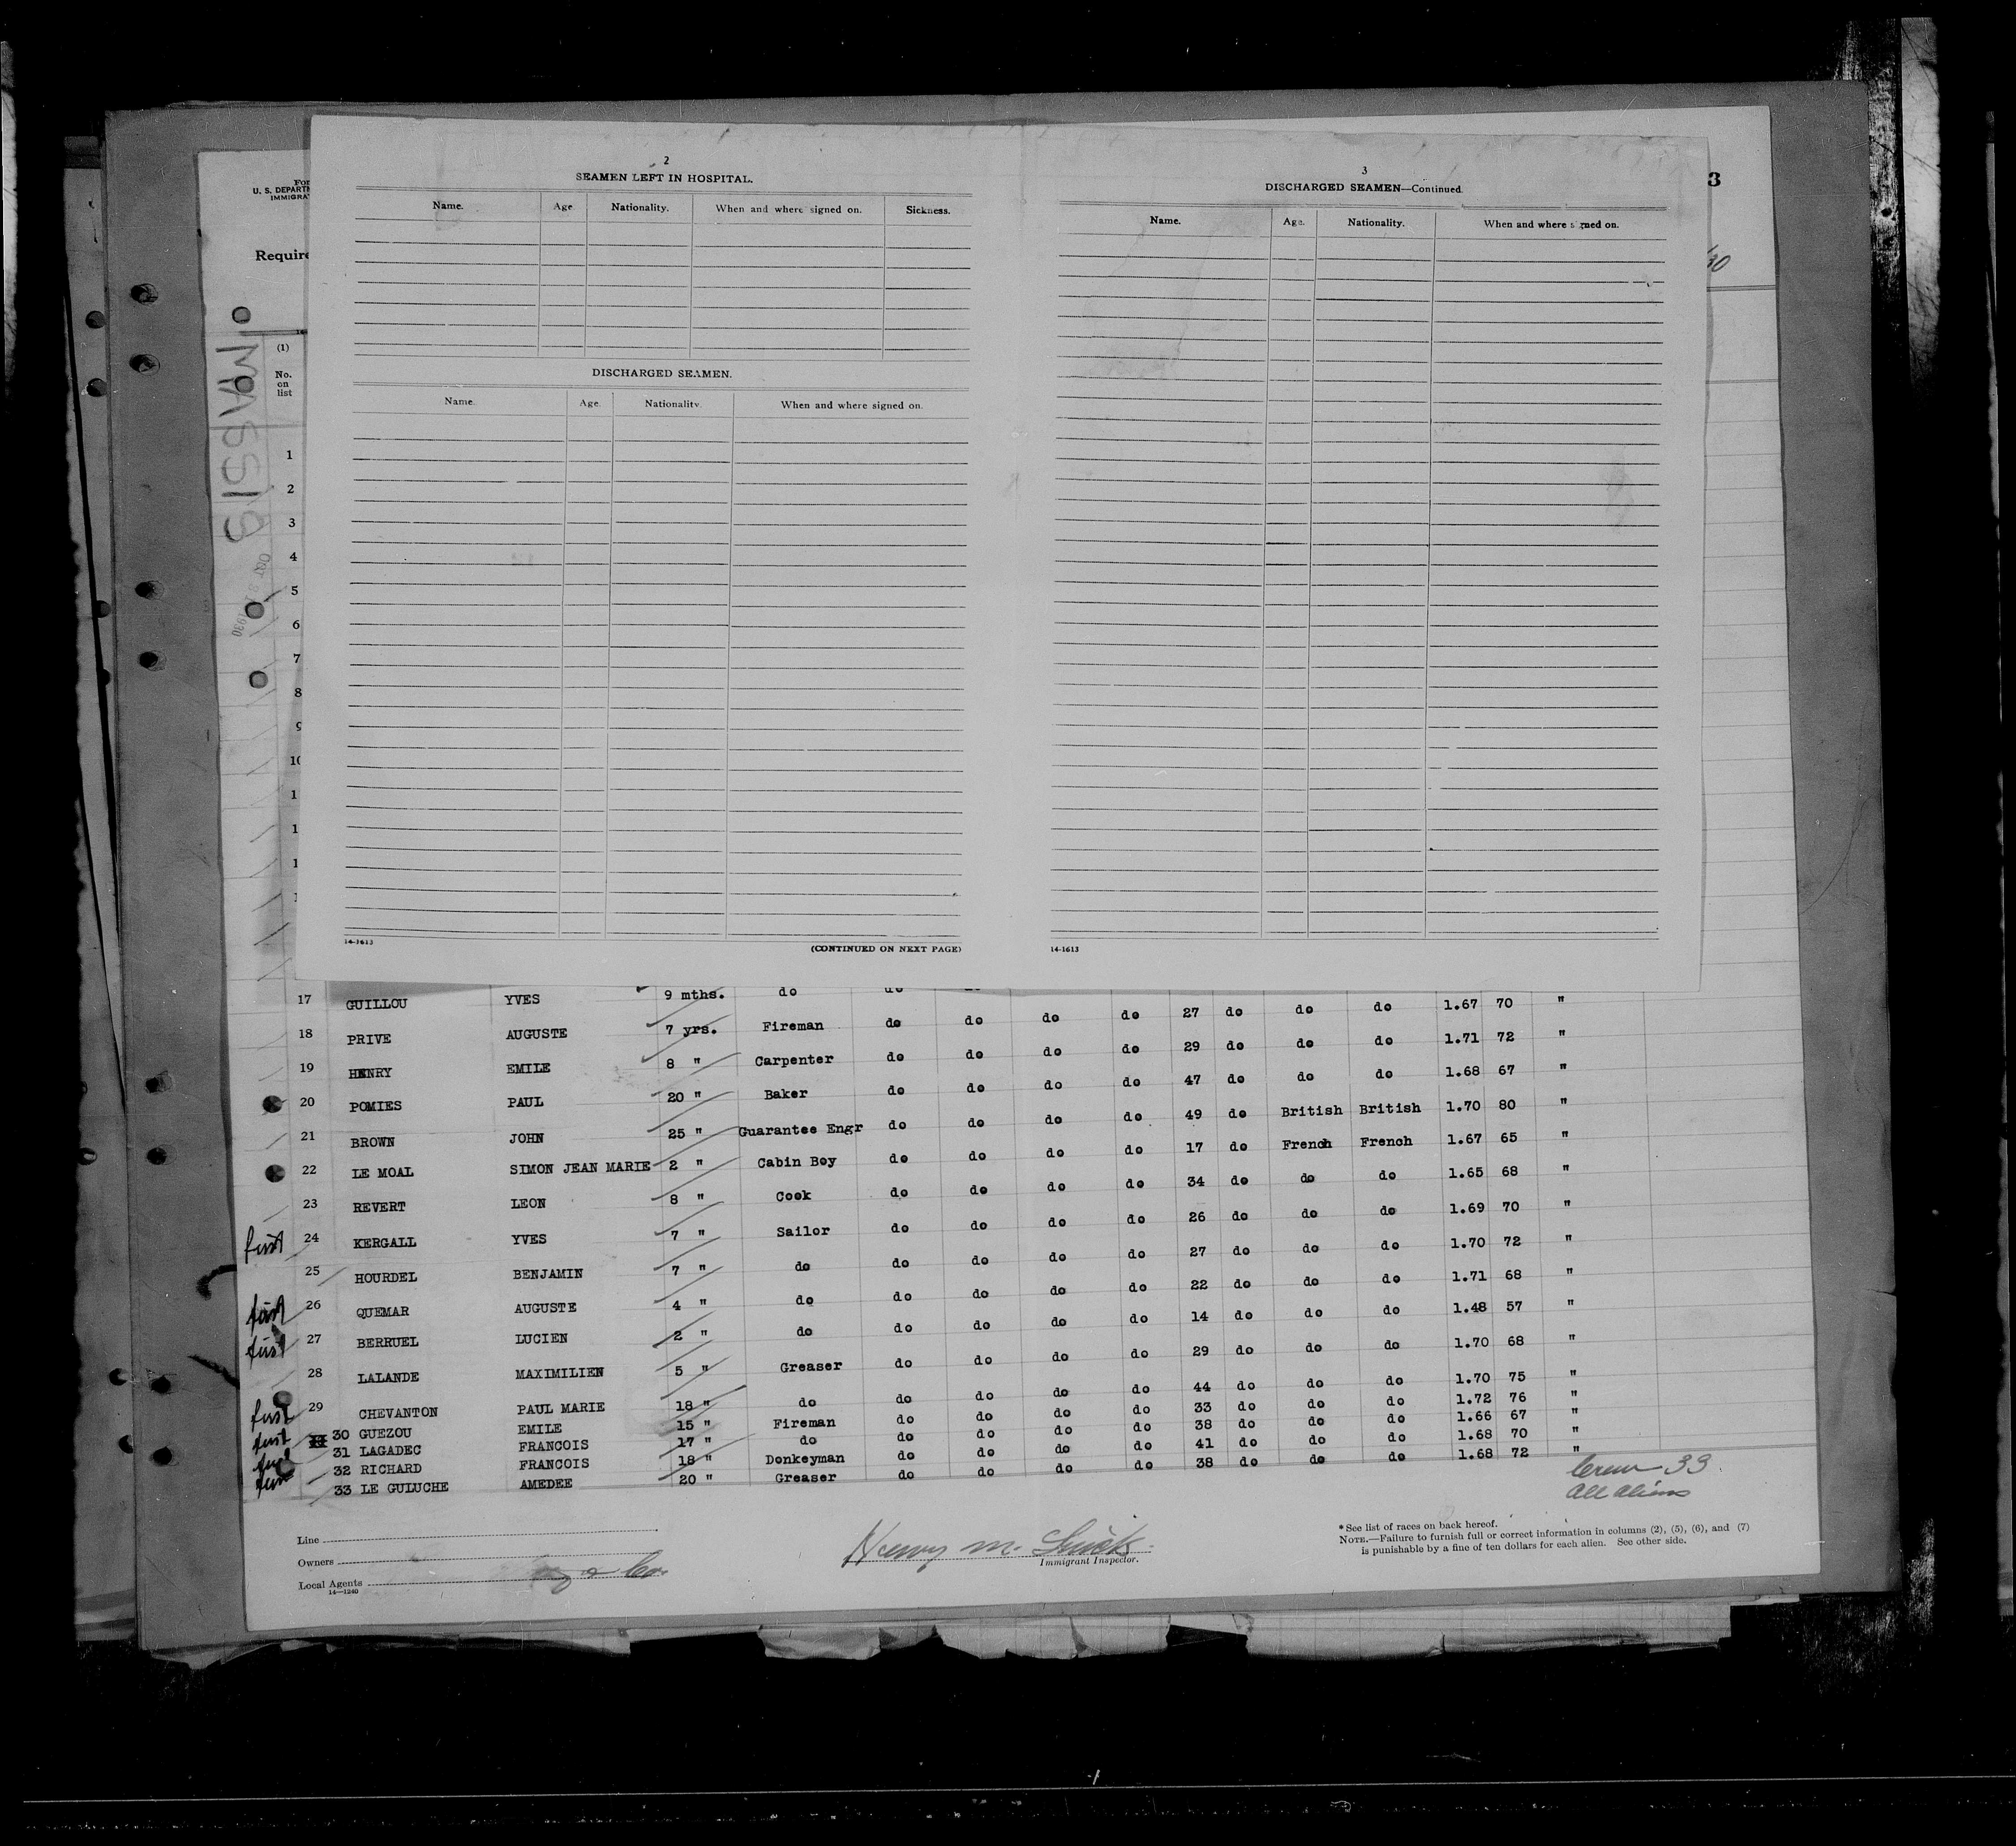 2
SEAMEN LEFT IN HOSPITAL.
Name. Age Nationality. When and where signed on. Sickness.
DISCHARGED SEAMEN.
Name. Age. Nationality. When and where signed on.
14-1613 (CONTINUED ON NEXT PAGE)
3
DISCHARGED SEAMEN—Continued.
Name. Age. Nationality. When and where signed on.
14-1613
3
U. S. DEPARTM
IMMIGRA
Require
(1)
No.
on
list
1
2
3
4
5
6
7
8
9
10
17 GUILLOU YVES 9 mths. do do 27 do do do 1.67 70 "
18 PRIVE AUGUSTE 7 yrs. Fireman do do do do 29 do do do 1.71 72 "
19 HENRY EMILE 8 " Carpenter do do do do 47 do do do 1.68 67 "
20 POMIES PAUL 20 " Baker do do do do 49 do British British 1.70 80 "
21 BROWN JOHN 25 " Guarantee Engr do do do do 17 do French French 1.67 65 "
22 LE MOAL SIMON JEAN MARIE 2 " Cabin Boy do do do do 34 do do do 1.65 68 "
23 REVERT LEON 8 " Cook do do do do 26 do do do 1.69 70 "
24 KERGALL YVES 7 " Sailor do do do do 27 do do do 1.70 72 "
25 HOURDEL BENJAMIN 7 " do do do do do 22 do do do 1.71 68 "
26 QUEMAR AUGUSTE 4 " do do do do do 14 do do do 1.48 57 "
27 BERRUEL LUCIEN 2 " do do do do do 29 do do do 1.70 68 "
28 LALANDE MAXIMILIEN 5 " Greaser do do do do 44 do do do 1.70 75 "
29 CHEVANTON PAUL MARIE 18 " do do do do do 33 do do do 1.72 76 "
30 GUEZOU EMILE 15 " Fireman do do do do 38 do do do 1.66 67 "
31 LAGADEC FRANCOIS 17 " do do do do do 41 do do do 1.68 70 "
32 RICHARD FRANCOIS 18 " Donkeyman do do do do 38 do do do 1.68 72 "
33 LE GULUCHE AMEDEE 20 " Greaser do do do
Crew 33.
All aliens
Line
Owners
Local Agents & Co.
14—1240
Henry M.
Immigrant Inspector.
* See list of races on back hereof.
NOTE.—Failure to furnish full or correct information in columns (2), (5), (6), and (7)
is punishable by a fine of ten dollars for each alien. See other side.